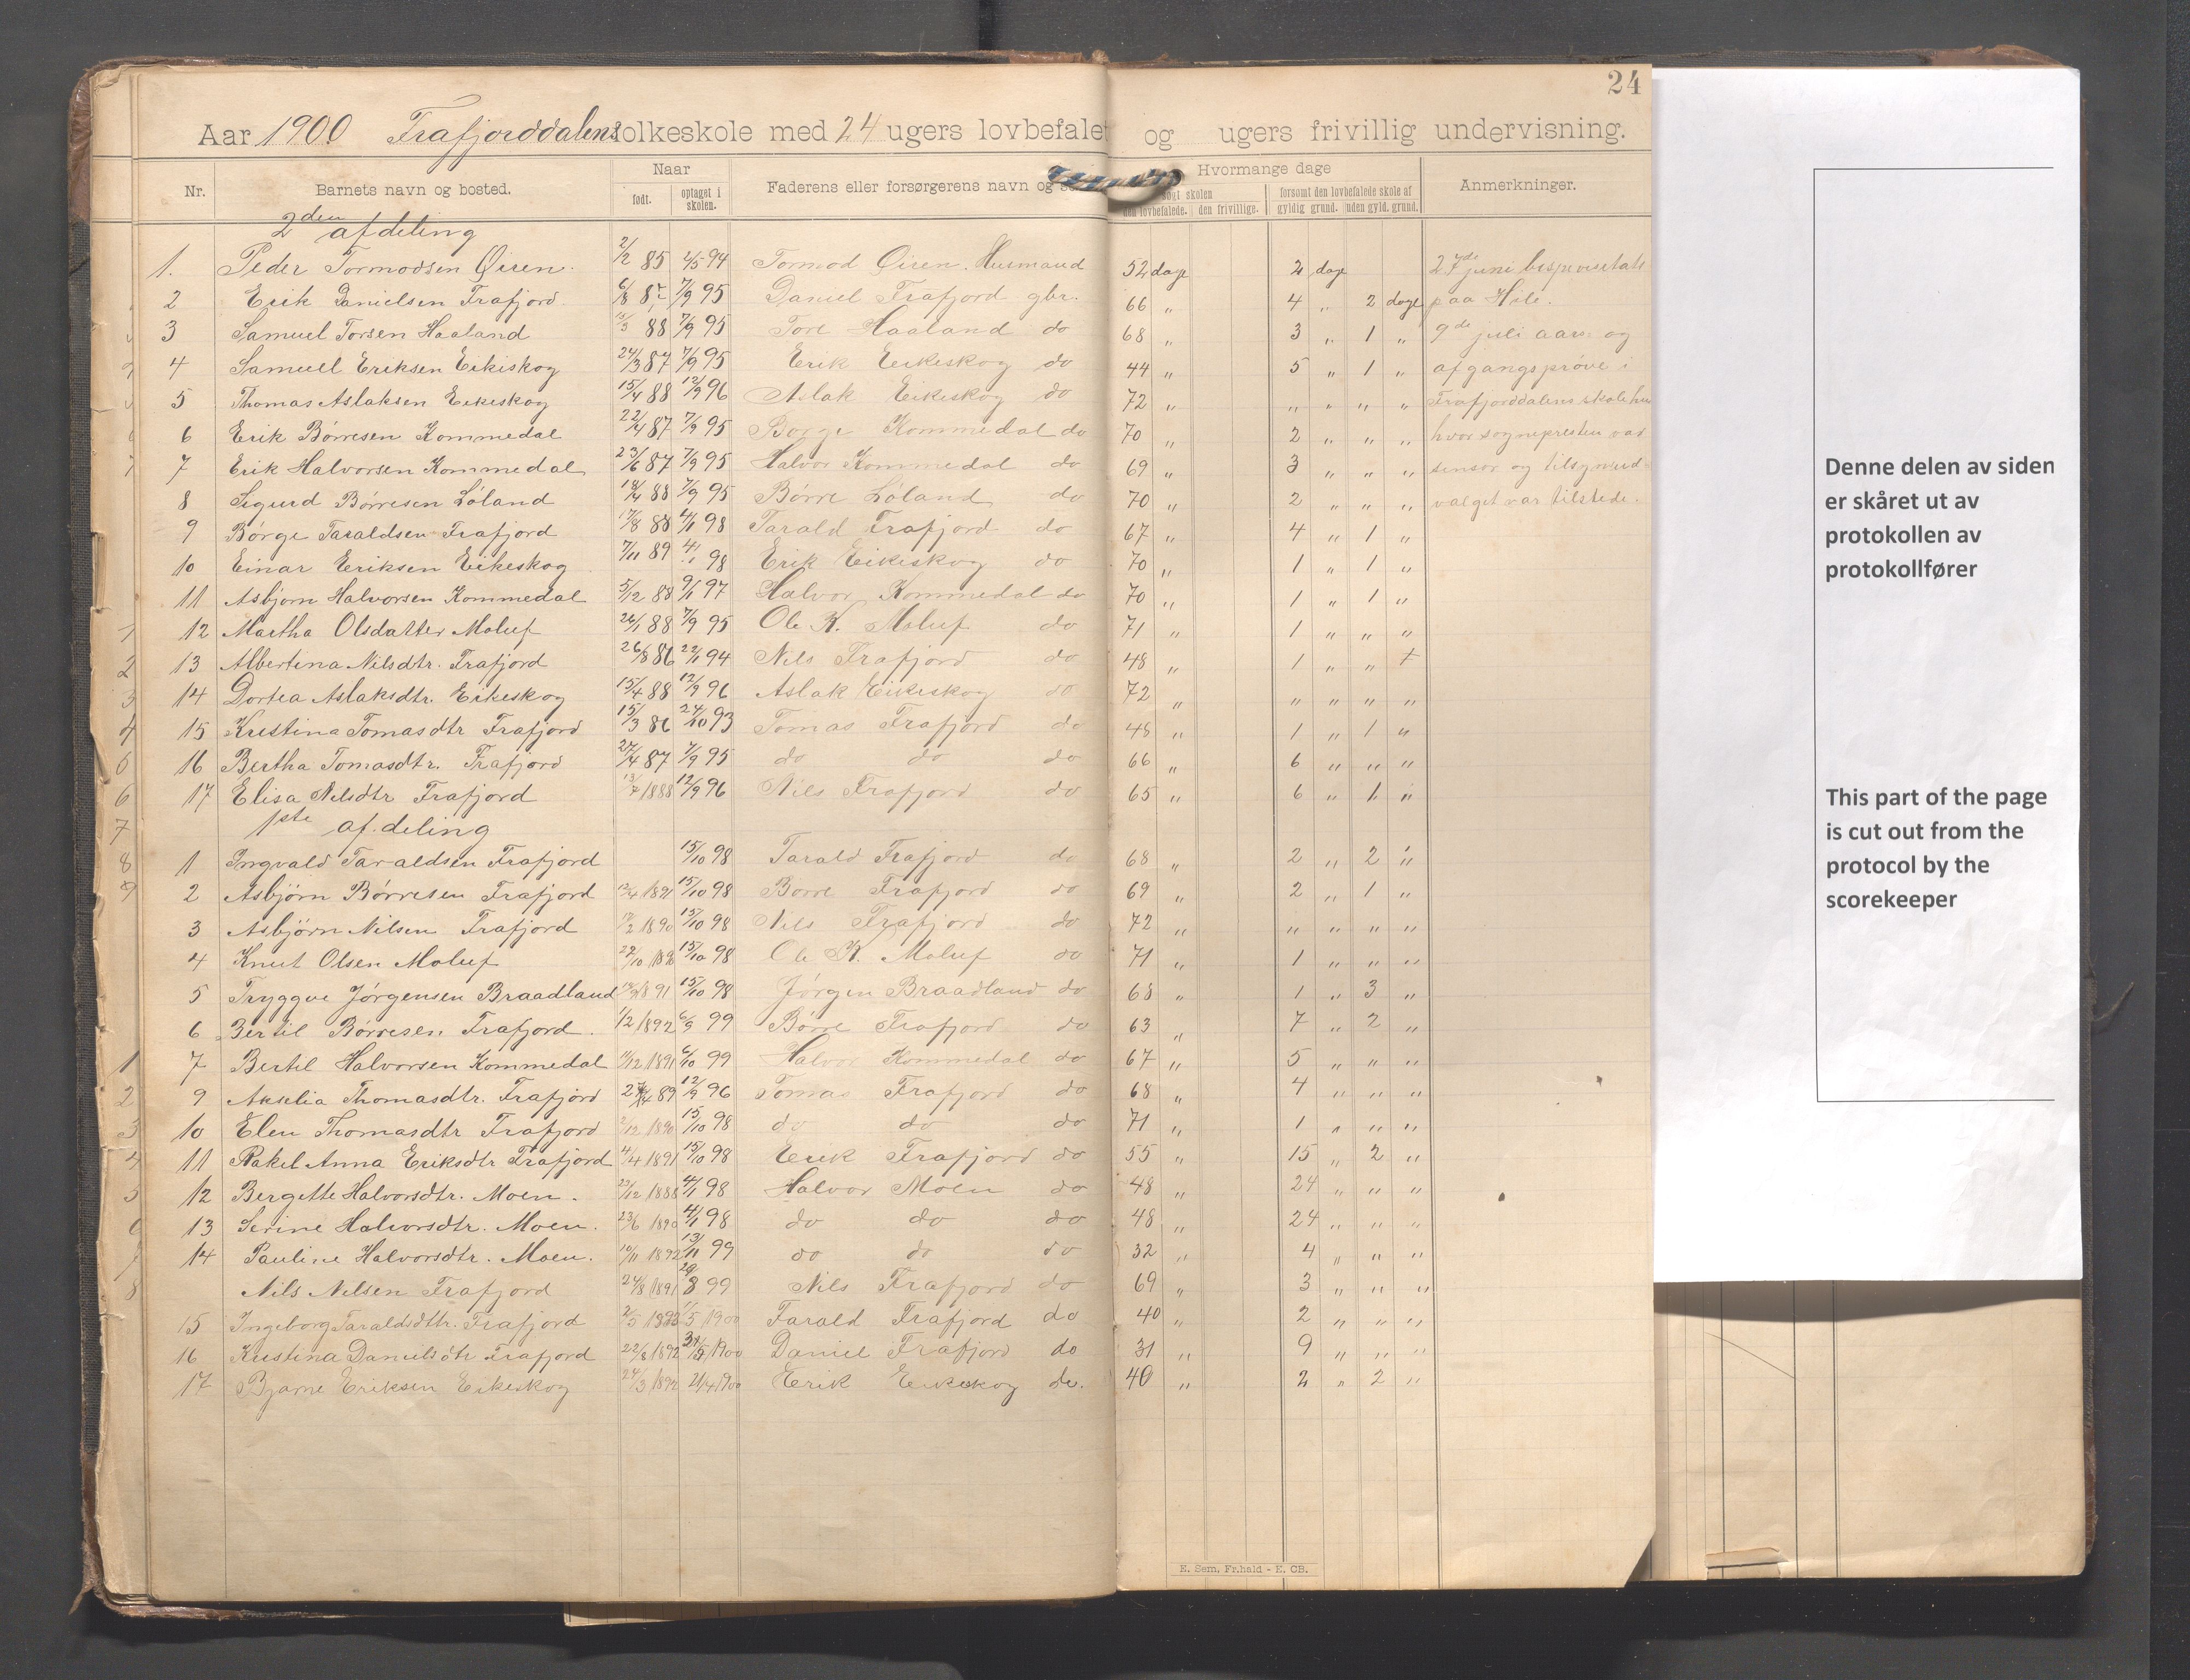 24
Aar 1900 Trafjorddalens folkeskole med 24 ugers lovbefalet og ugers frivillig undervisning.
Nr. Barnets navn og bosted. Naar født. optaget i skolen. Faderens eller forsørgerens navn og Hvormange dage søgt skolen den lovbefalede. den frivillige. forsømt den lovbefalede skole af gyldig grund. uden gyld. grund. Anmerkninger.
2den afdeling
1. Peder Tormodsen Øiren. 2/2 85 2/5 94 Tormod Øiren. Husmand 52 dage 2 dage 27de juni bispevisitats
2 Erik Danielsen Trafjord 6/8 7/9 95 Daniel Trafjord gbr. 66 " 4 " 2 dage paa Hile.
3 Samuel Torsen Haaland 88 7/9 95 Tore Haaland do 68 " 3 " 1 " 9de juli aars og
4 Samuel Eriksen Eikiskog 24/3 87 7/9 95 Erik Eikeskog do 44 " 5 " 1 " afgangsprøve i
5 Thomas Aslaksen Eikeskog 15/4 88 12/9 96 Aslak Eikeskog do 72 " " " " " Trafjorddalens skolehus
6 Erik Børresen Kommedal 22/4 87 7/9 95 Børge Kommedal do 70 " 2 " " " hvor sognepresten var
7 Erik Halvorsen Kommedal 23/6 87 7/9 95 Halvor Kommedal do 69 " 3 " " " sensor og tilsynsud-
8 Sigurd Børresen Løland 18/4 88 7/9 95 Børre Løland do 70 " 2 " " " valget var tilstede.
9 Børge Taraldsen Trafjord 17/8 88 4/1 98 Tarald Trafjord do 67 " 4 " 1 "
10 Einar Eriksen Eikeskog 7/11 89 4/1 98 Erik Eikeskog do 70 " 1 " 1 "
11 Asbjørn Halvorsen Kommedal 5/12 88 9/1 97 Halvor Kommedal do 70 " 1 " 1 "
12 Martha Olsdatter Moluf 26/1 88 7/9 95 Ole K. Moluf do 71 " 1 " " "
13 Albertina Nilsdtr. Trafjord 26/8 86 22/1 94 Nils Trafjord do 48 " 1 " "
14 Dortea Aslaksdtr. Eikeskog 15/4 88 12/9 96 Aslak Eikeskog do 72 " " " " "
15 Kristina Tomasdtr Trafjord 15/3 86 24/10 93 Tomas Trafjord do 48 " 1 " 1 "
16 Bertha Tomasdtr. Trafjord 27/4 87 7/9 95 do do do 66 " 6 " " "
17 Elisa Nilsdtr Trafjord 13/7 1888 12/9 96 Nils Trafjord do 65 " 6 " 1 "
1ste afdeling
1 Ingvald Taraldsen Trafjord 15/10 98 Tarald Trafjord do 68 " 2 " 2 "
2 Asbjørn Børresen Trafjord 12/4 1891 15/10 98 Børre Trafjord do 69 " 2 " 1 "
3 Asbjørn Nilsen Trafjord 1890 15/10 98 Nils Trafjord do 72 " " " " "
4 Knut Olsen Moluf 15/10 98 Ole K. Moluf do 71 " 1 " " "
5 Tryggve Jørgensen Braadland 15/10 98 Jørgen Braadland do 68 " 1 " 3 "
6 Bertil Børresen Trafjord. 1/2 1892 6/9 99 Børre Trafjord do 63 " 7 " 2 "
7 Bertil Halvorsen Kommedal 1891 6/10 99 Halvor Kommedal do 67 " 5 " " "
9 Akselia Thomasdtr. Trafjord 89 12/9 96 Tomas Trafjord do 68 " 4 " " "
10 Elen Thomasdtr Trafjord 1890 15/10 98 do do do 71 " 1 " " "
11 Rakel Anna Eriksdtr Trafjord 4/4 1891 15/10 98 Erik Trafjord do 55 " 15 " 2 "
12 Bergette Halvorsdtr. Moen. 23/12 1888 4/1 98 Halvor Moen do 48 " 24 " " "
13 Serine Halvorsdtr. Moen. 23/6 1890 4/1 98 do do do 48 " 24 " " "
14 Pauline Halvorsdtr. Moen. 10/11 1892 13/11 99 do do do 32 " 4 " " "
Nils Nilsen Trafjord 24/8 1891 29/8 99 Nils Trafjord do 69 " 3 " " "
15 Ingeborg Taraldsdtr. Trafjord 2/5 1900 Tarald Trafjord do 40 " 2 " " "
16 Kristina Danielsdtr Trafjord 22/8 1892 1900 Daniel Trafjord do 31 " 9 " " "
17 Bjarne Eriksen Eikeskog 24/3 1892 2/4 1900 Erik Eikeskog do. 40 " 2 " 2 "
E. Sem, Fr.hald - E. CB.
Denne delen av siden
er skåret ut av
protokollen av
protokollfører
This part of the page
is cut out from the
protocol by the
scorekeeper